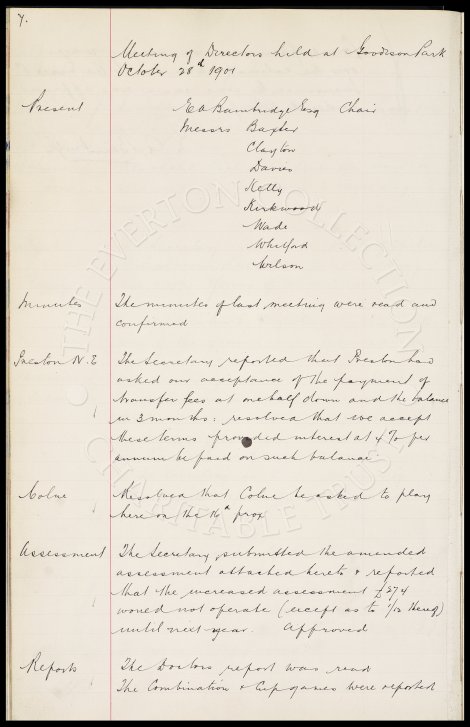 7.
Meeting of Directors held at Goodison Park
October 28th 1901
Present E A Bainbridge Esq Chair
Messrs Baxter
Clayton
Davies
Kelly
Kirkwood
Wade
Whitford
Wilson
Minutes The minutes of last meeting were read and
confirmed
Preston N. E The Secretary reported that Preston had
asked our acceptance of the payment of
transfer fees at one half down and the balance
in 3 months: resolved that we accept
these terms provided interest at 4 % per
annum be paid on such balance
Colne Resolved that Colne be asked to play
here on the 16th prox
Assessment The Secretary submitted the amended
assessment attached hereto & reported
that the increased assessment £274
would not operate (except as to 1/12 thereof)
until next year. Approved
Reports The Doctors report was read
The Combination & Cup games were reported
THE EVERTON COLLECTION
CHARITABLE TRUST